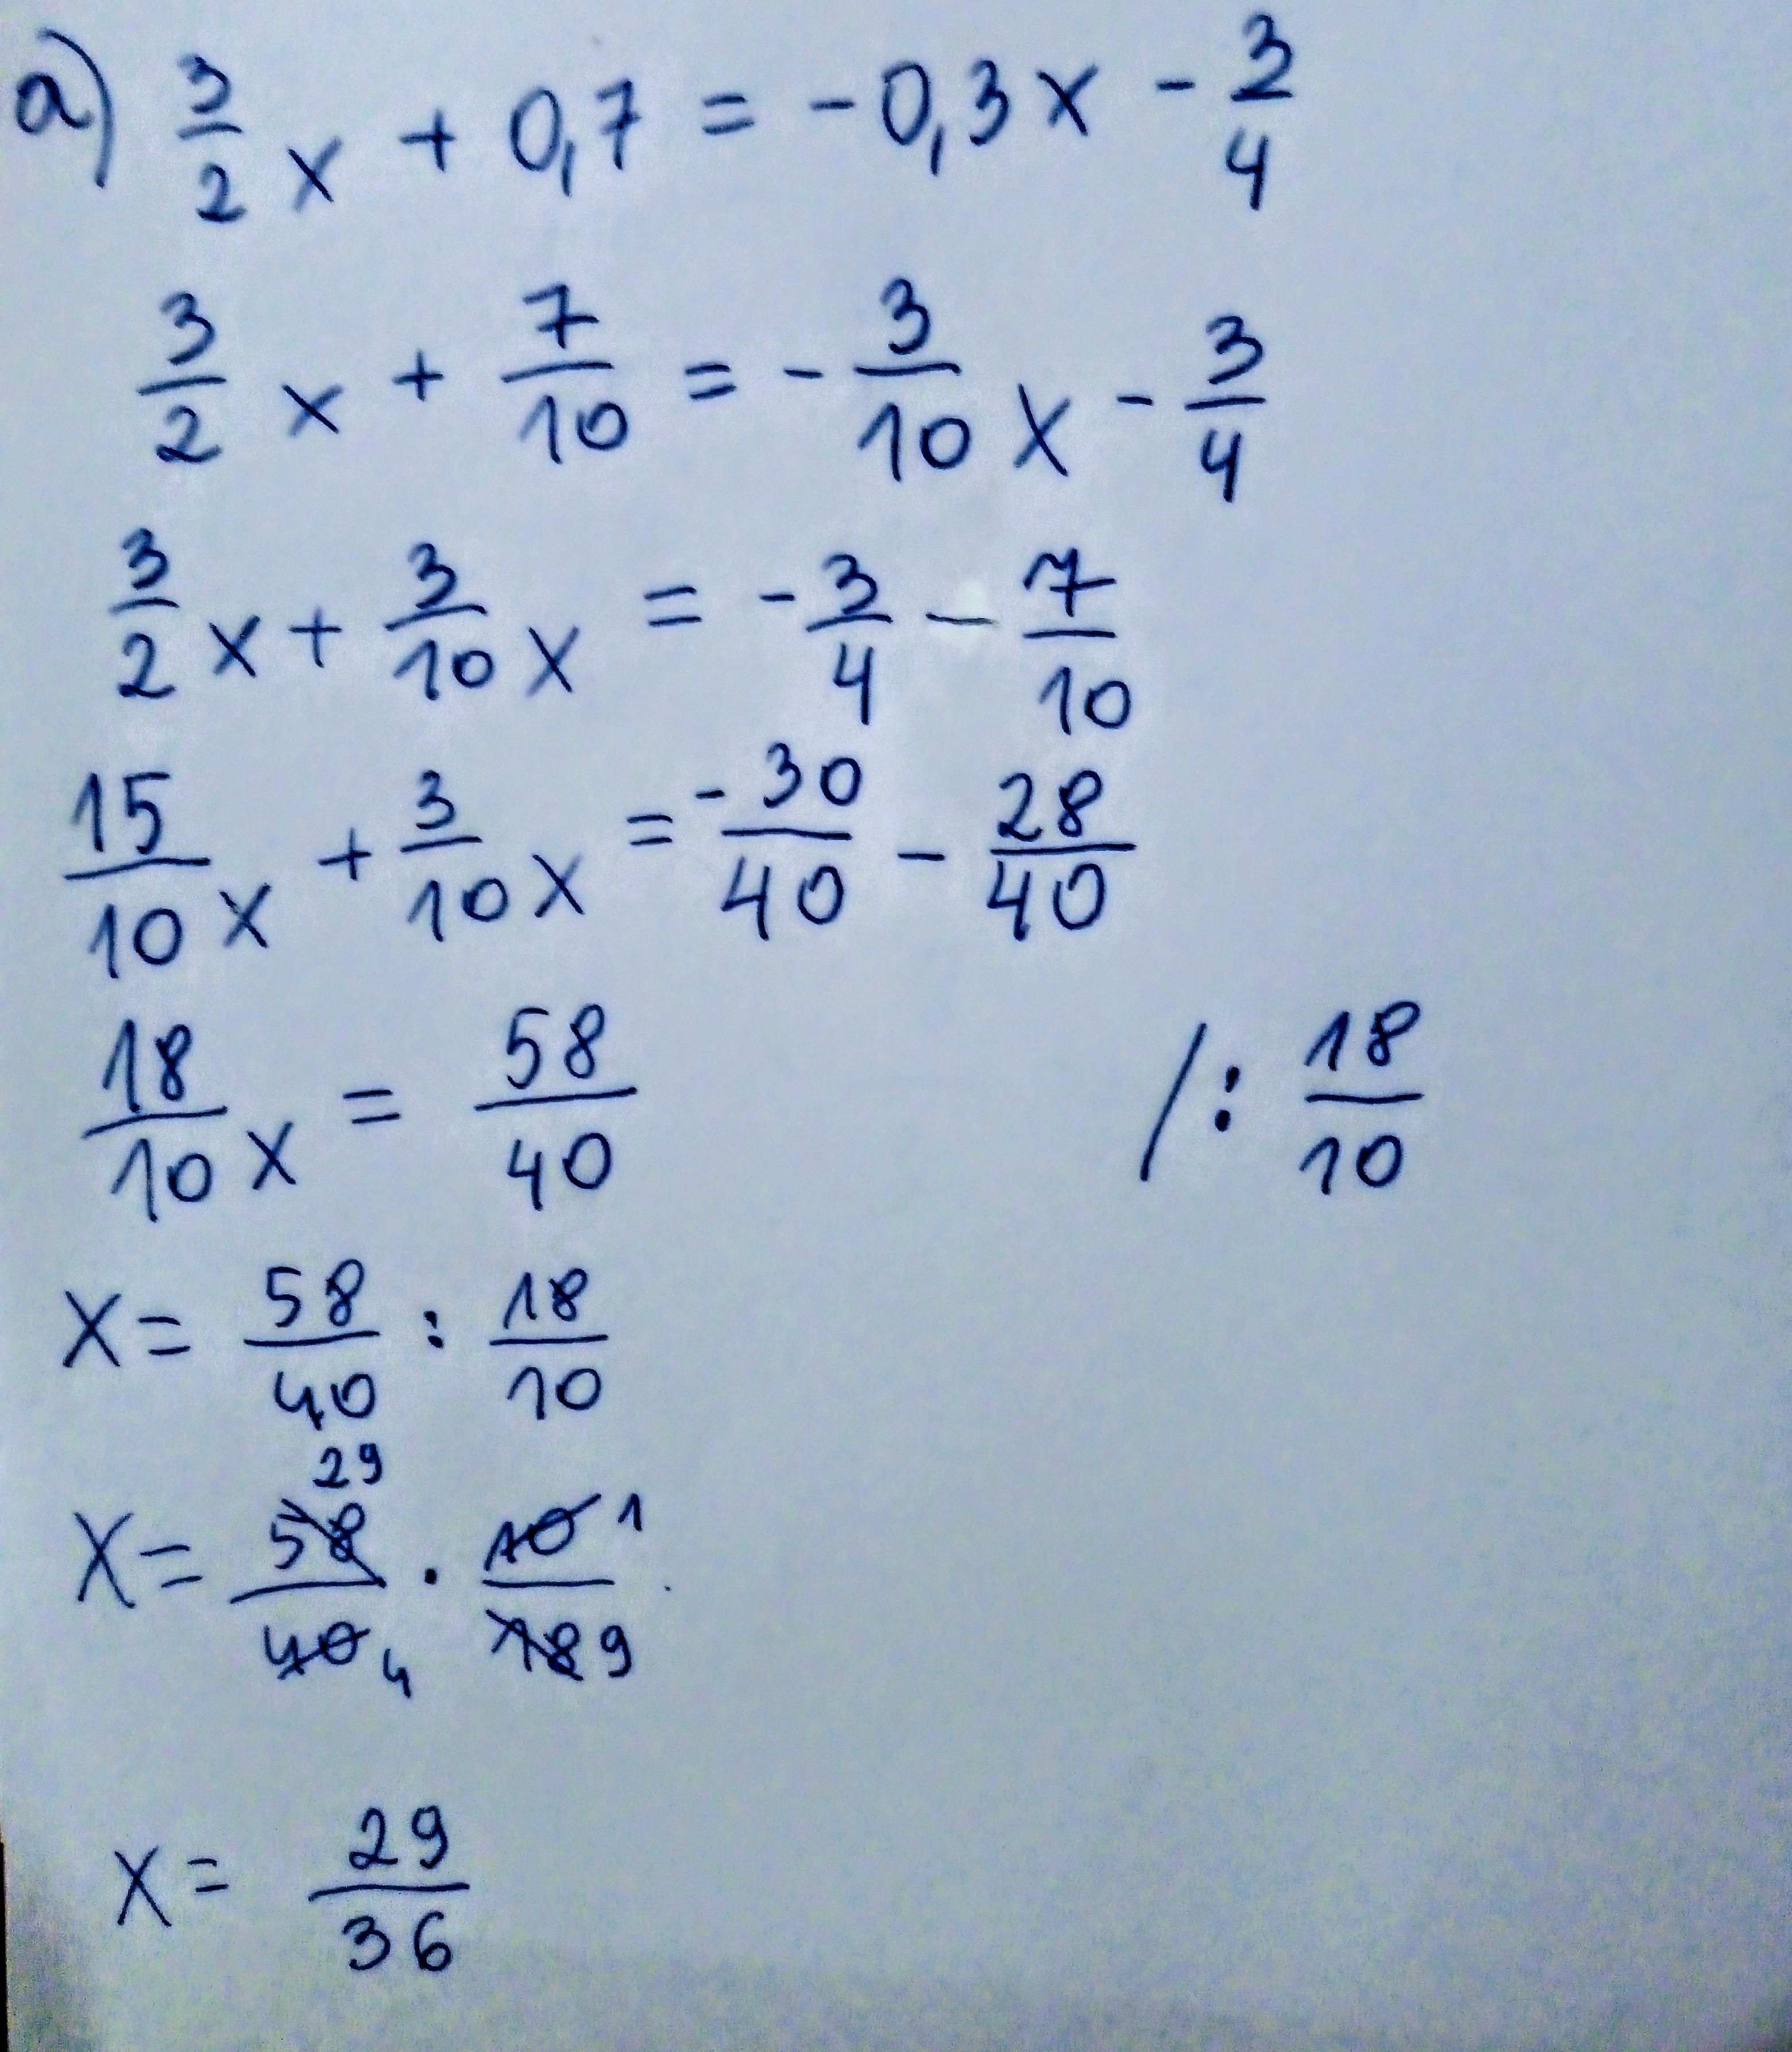 a) 3/2 x + 0,7 = -0,3x - 3/4
3/2 x + 7/10 = - 3/10 x - 3/4
3/2 x + 3/10 x = - 3/4 - 7/10
15/10 x + 3/10 x = -30/40 - 28/40
18/10 x = 58/40 /: 18/10
x = 58/40 : 18/10
29
x = 58/40 · 10/18 1
4 9
x = 29/36